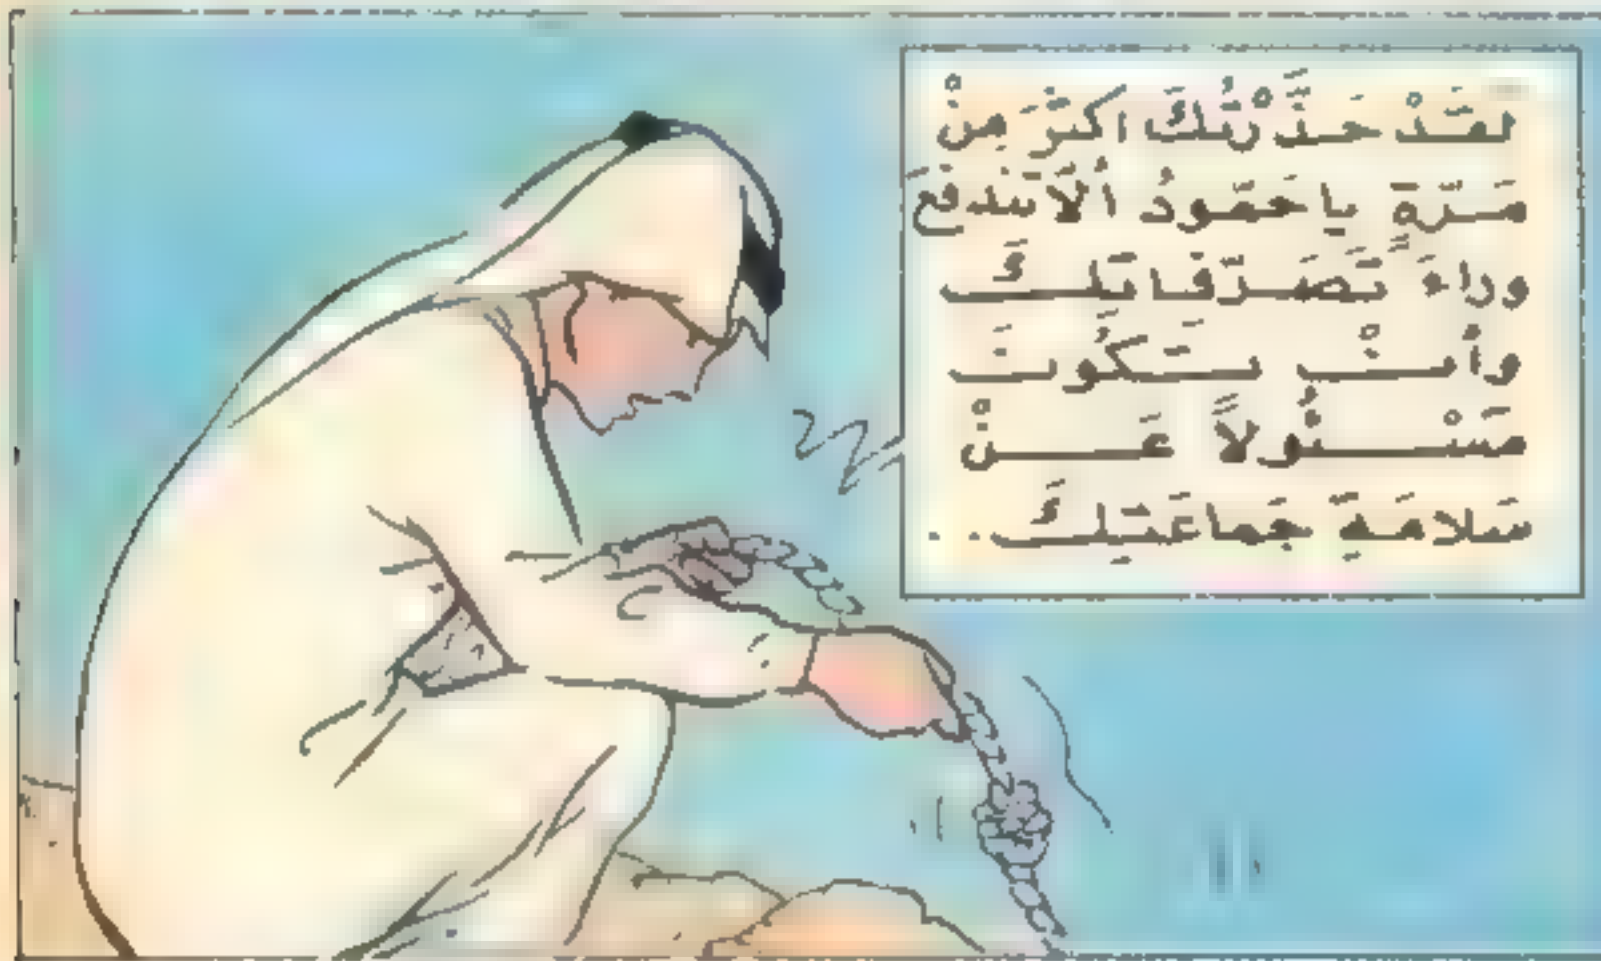 لقَدْ حَذَّرْتُكَ اكثَرَ مِنْ
مَرّةٍ ياحَمّودُ ألاّ تندفعَ
وراءَ تَصَرّفاتِكَ
وأنْ تَكُونَ
مَسْئُولاً عَنْ
سَلامَةِ جَماعَتِكَ..